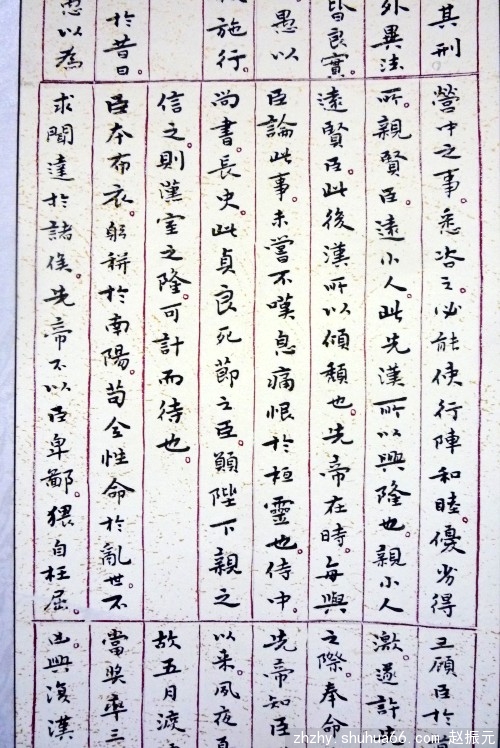 其刑
外異法
皆良實。
愚以
施行。
於昔日。
以為
營中之事。悉咨之。必能使行陣和睦。優劣得
所。親賢臣。遠小人。此先漢所以興隆也。親小人
遠賢臣。此後漢所以傾頹也。先帝在時。每與
臣論此事。未嘗不嘆息痛恨於桓靈也。侍中
尚書。長史。此貞良死節之臣。願陛下親之
信之。則漢室之隆。可計而待也。
臣本布衣。躬耕於南陽。苟全性命於亂世。不
求聞達於諸侯。先帝不以臣卑鄙。猥自枉屈。
三顧臣於
激。遂許
之際。奉命
先帝知臣
以來。夙夜
故五月渡
當奬率三
凶。興復漢
zhzhy.shuhua66.com 赵振元